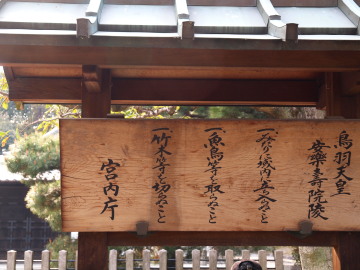 鳥羽天皇
安樂寿院陵
一、みだりに域内に立入らぬこと
一、魚鳥等を取らぬこと
一、竹木等を切らぬこと
宮内庁